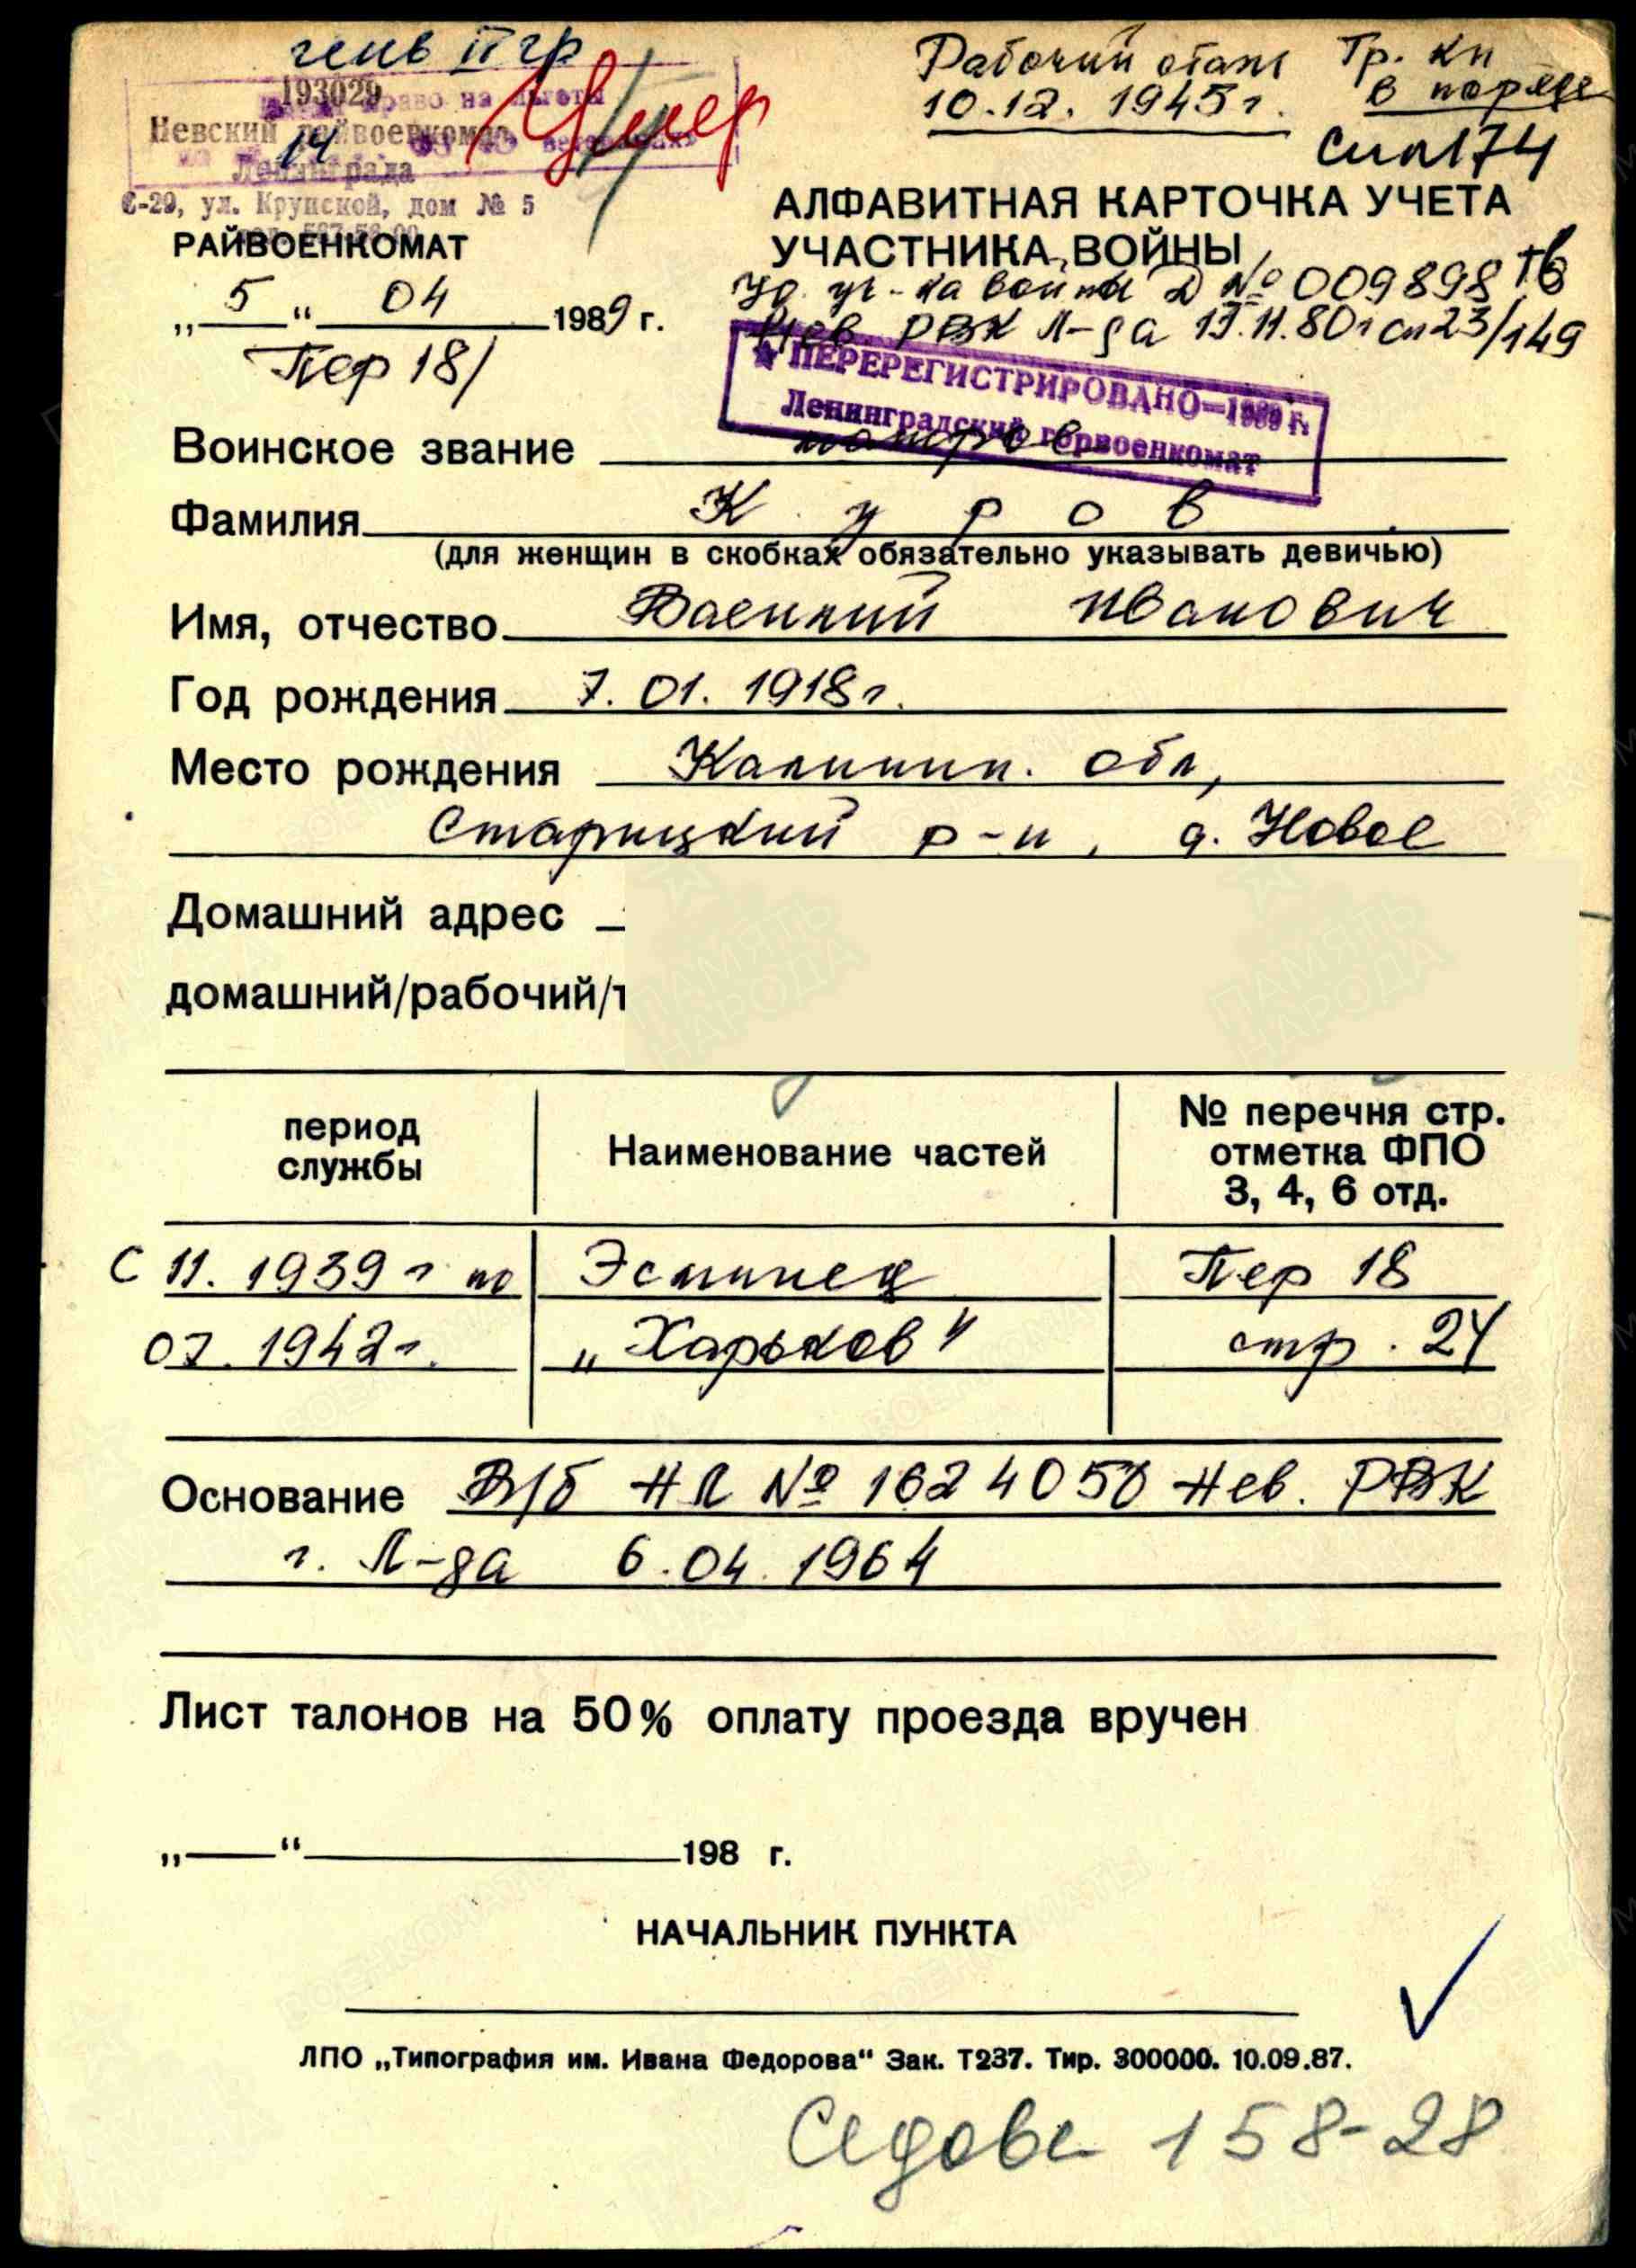 член II гр
193029
право на льготы
Умер
Невский райвоенкомат
14
Ленинграда
С-29, ул. Крупской, дом № 5
РАЙВОЕНКОМАТ
„ 5 “ 04 1989 г.
Пер 18/
Рабочий стаж
10.12. 1945 г.
Тр. кн
в поряд
174
АЛФАВИТНАЯ КАРТОЧКА УЧЕТА
УЧАСТНИКА ВОЙНЫ
Уд. уч-ка войны Д № 009898
Нев. РВК Л-да 80г сп 23/149
★ ПЕРЕРЕГИСТРИРОВАНО—1989 г.
Ленинградский горвоенкомат
Воинское звание матрос
Фамилия К у р о в
(для женщин в скобках обязательно указывать девичью)
Имя, отчество Василий Иванович
Год рождения 7. 01. 1918 г.
Место рождения Калинин. обл,
Старицкий р-н, д. Новое
Домашний адрес
домашний/рабочий/т
период службы
Наименование частей
№ перечня стр. отметка ФПО 3, 4, 6 отд.
с 11. 1939 г по Эсминец Пер 18
07. 1942 г. „Харьков“ стр. 24
Основание В/б НЛ № 1624050 Нев. РВК
г. Л-да 6.04.1964
Лист талонов на 50% оплату проезда вручен
„ “ 198 г.
НАЧАЛЬНИК ПУНКТА
ЛПО „Типография им. Ивана Федорова“ Зак. Т237. Тир. 300000. 10.09.87.
Седова 158-28
ПАМЯТЬ НАРОДА
ПАМЯТЬ НАРОДА